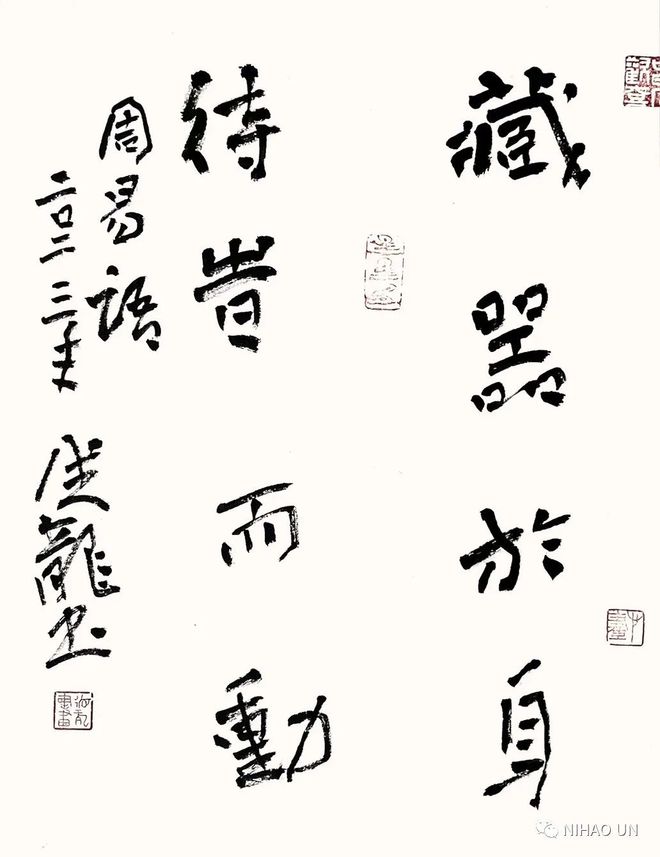 藏器於身
待旹而動
周易語
二〇二三年
龍书
NIHAO UN